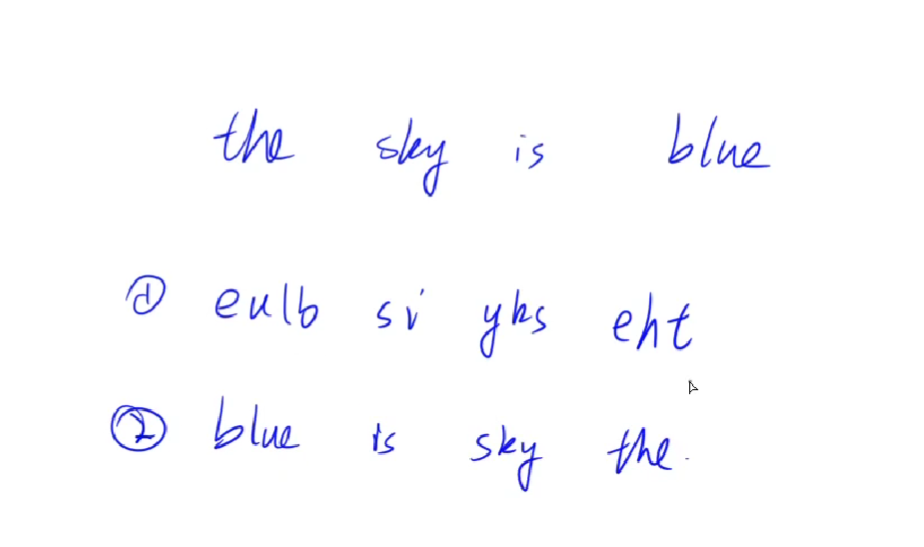 the sky is blue
① eulb si yks eht
② blue is sky the.